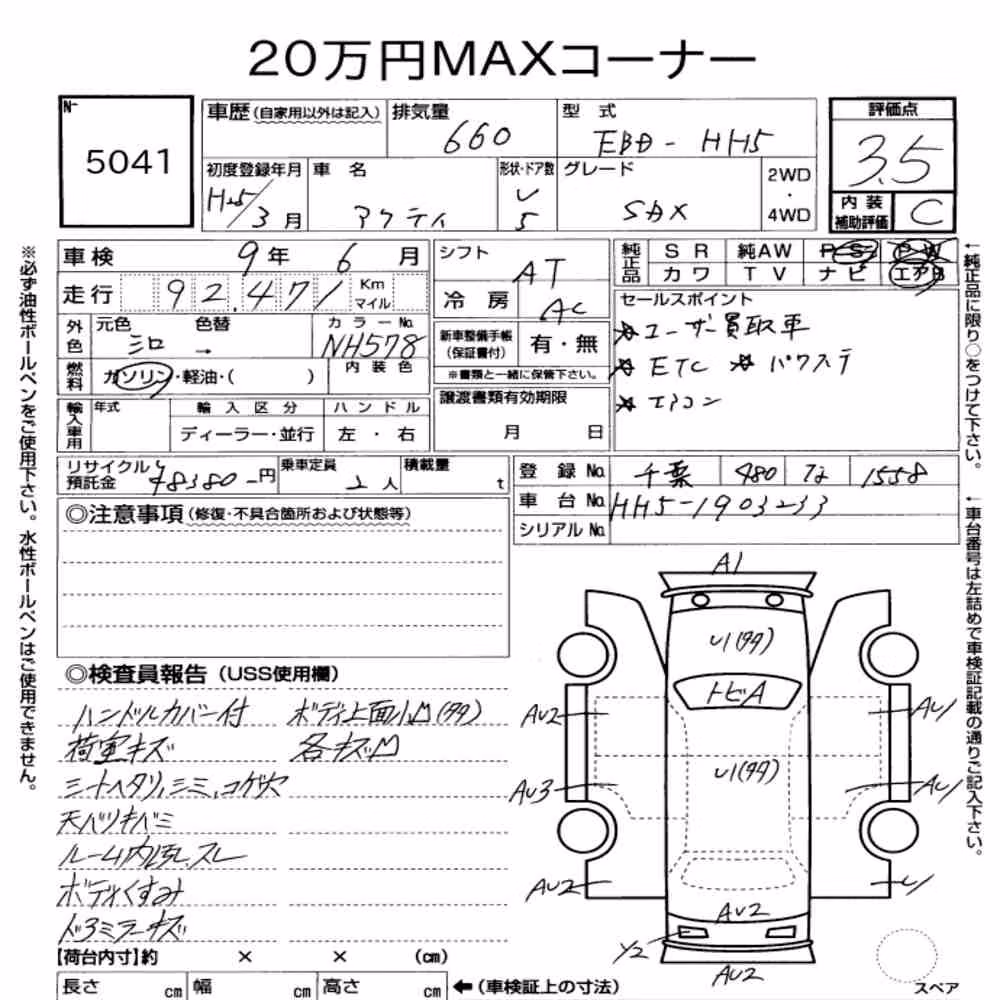 20万円MAXコーナー
N- 5041
車歴(自家用以外は記入) 排気量 660 型式 EBD-HH5 評価点 3.5
初度登録年月 H25/3月 車名 アクティ 形状・ドア数 V 5 グレード SDX 2WD・4WD 内装補助評価 C
車検 9年 6月 シフト AT 純正品 SR 純AW PS PW
走行 92,471 Km マイル 冷房 AC カワ TV ナビ エアB
外色 元色 シロ → 色替 カラーNo. NH578
新車整備手帳(保証書付) 有・無
※書類と一緒に保管下さい。
セールスポイント
☆ユーザー買取車
☆ETC ☆パワステ
☆エアコン
燃料 ガソリン・軽油・( ) 内装色
輸入車用 年式 輸入区分 ハンドル
ディーラー・並行 左・右
譲渡書類有効期限
月 日
リサイクル預託金 ¥8380-円 乗車定員 2人 積載量 t
登録No. 千葉 480 1558
車台No. HH5-1903233
シリアルNo.
◎注意事項(修復・不具合箇所および状態等)
◎検査員報告(USS使用欄)
ハンドルカバー付 ボディ上面小凹(多々)
荷室キズ 各キズ凹
シートヘタリ、シミ、コゲ穴
天バリキバミ
ルーム内汚れ、スレ
ボディくすみ
ドアミラーキズ
【荷台内寸】約 × × (cm)
長さ cm 幅 cm 高さ cm ←(車検証上の寸法)
A1
U1(多々)
トビA
AU2 AU1
U1(多々)
AU3 AU1
AU2 U1
AU2
Y2
AU2
スペア
※必ず油性ボールペンをご使用下さい。水性ボールペンはご使用できません。
←純正品に限り○をつけて下さい。
←車台番号は左詰めで車検証記載の通りご記入下さい。